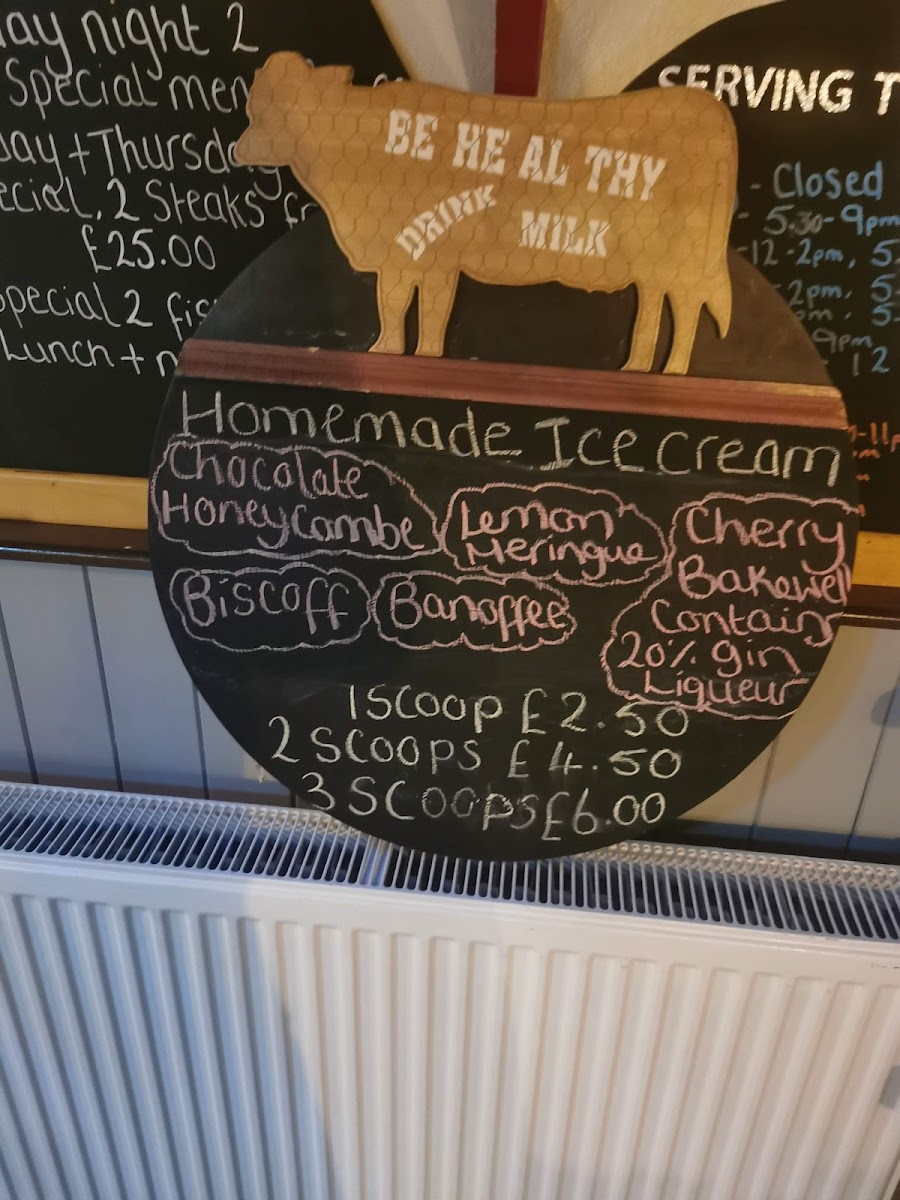 ay night 2
Special men
day + Thursda
ecial, 2 Steaks
£25.00
pecial 2 fis
Lunch +
BE HE AL THY
DRINK MILK
SERVING T
- Closed
- 5.30-9pm
12-2pm, 5.
2pm, 5
pm, 5
9pm
12
-11p
Homemade Ice Cream
Chocolate
HoneyCombe
Lemon
Meringue
Cherry
Bakewell
Contains
20% gin
Liqueur
Biscoff
Banoffee
1 SCOOP £2.50
2 SCOOPS £4.50
3 SCOOPS £6.00